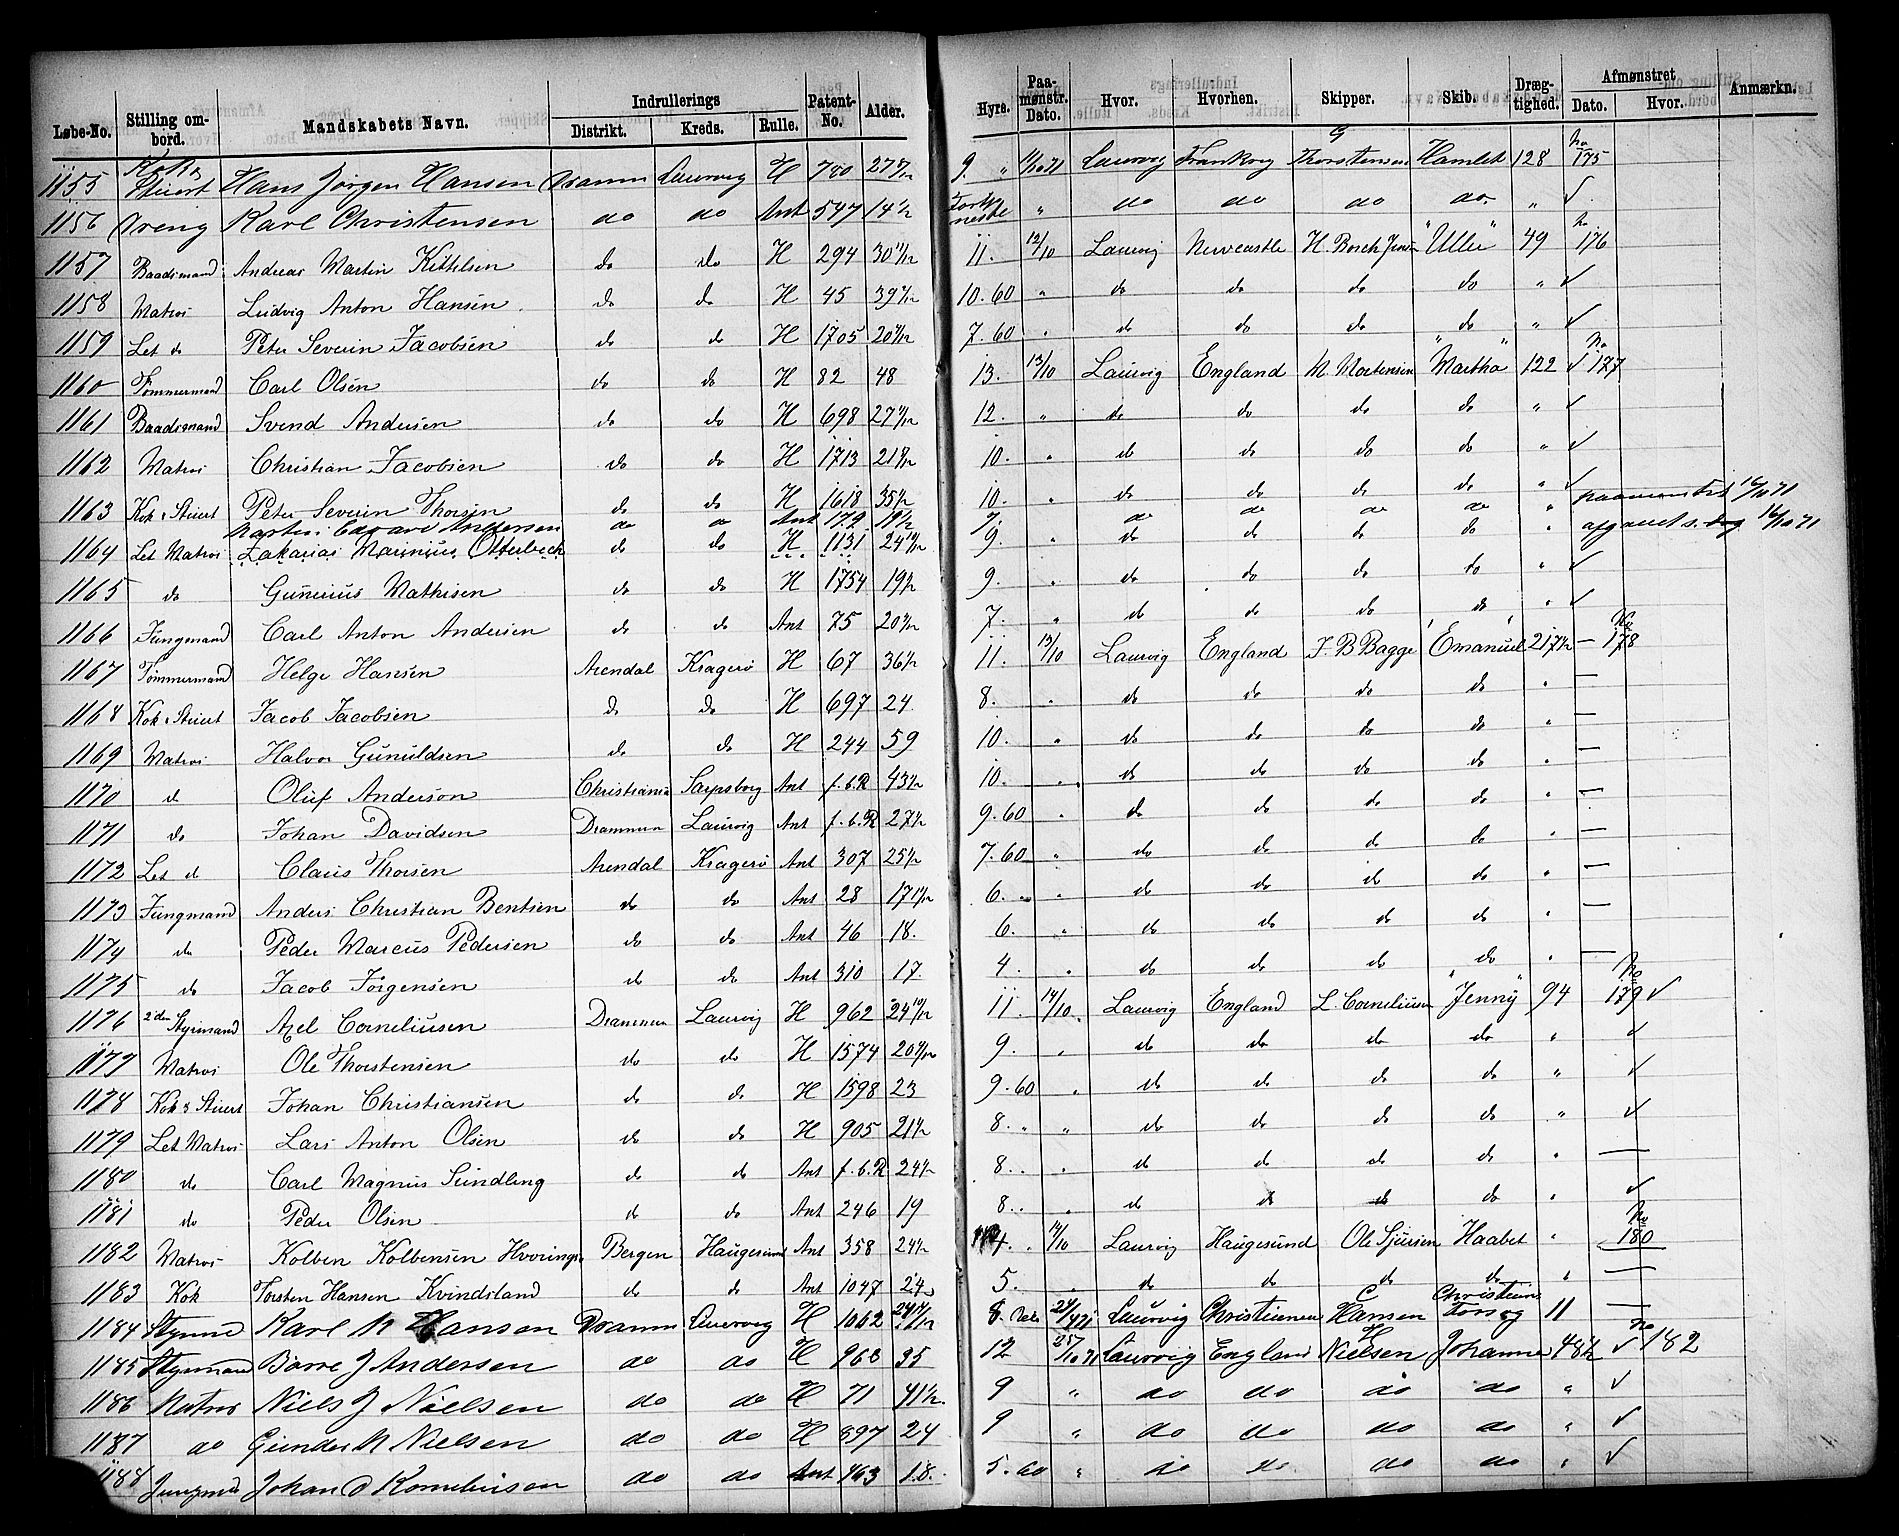 Løbe-No. Stilling ombord. Mandskabets Navn. Indrullerings Distrikt. Kreds. Rulle. Patent-No. Alder. Hyre. Paamønstr. Dato. Hvor. Hvorhen. Skipper. Skib. Drægtighed. Afmønstret Dato. Hvor. Anmærkn.
1155 Kok & Stuert Hans Jørgen Hansen Dramm Laurvig H 780 9 " 11/10 71 Laurvig Thorstensen Hamlet 128 No 175
1156 Dreng Karl Christensen do do Ant 547 14 1/2 " do do do do " ✓
1157 Baadsmand Andreas Martin Kittelsen do do H 294 30 11. 12/10 Laurvig Newcastle H. Borch Jensen "Ulle" 49 No 176
1158 Matros Ludvig Anton Hansen do do H 45 39 10.60 " do do do do " ✓
1159 Let do Peter Severin Jacobsen do do H 1705 20 7.60 " do do do do " ✓
1160 Tømmermand Carl Olsen do do H 82 48 13. 13/10 Laurvig England M. Mortensen "Martha" 122 ✓ No 177
1161 Baadsmand Svend Andersen do do H 698 27 12. " do do do do " ✓
1162 Matros Christian Jacobsen do do H 1713 21 10. " do do do do " ✓
1163 Kok & Stuert Peter Severin Thorsen do do H 1618 35 1/2 10. " do do do do " ✓
Martin Edvard Andersen do do Ant 179 19 1/2 7. do do do do " paamønstret 16/10 71
1164 Let Matros Zakarias Marinius Otterbech do do H 1131 24 9. " do do do do " afgaaet s. dag 16/10 71
1165 do Gunerius Mathisen do do H 1754 19 1/2 9. " do do do do " ✓
1166 Jungmand Carl Anton Andersen do do Ant 75 20 7. " do do do do " ✓
1167 Tømmermand Helge Hansen Arendal Kragerø H 67 36 1/2 11. 13/10 Laurvig England J. B Bagge "Emanuel" 217 1/2 — No 178
1168 Kok & Stuert Jacob Jacobsen do do H 697 24. 8. " do do do do " —
1169 Matros Halvor Gunuldsen do do H 244 59 10. " do do do do " —
1170 do Oluf Anderson Christiania Sarpsborg Ant f.b.R 43 1/2 10. " do do do do " —
1171 do Johan Davidsen Drammen Laurvig Ant f.b.R 27 1/2 9.60 " do do do do " —
1172 Let do Claus Thorsen Arendal Kragerø Ant 307 25 1/2 7.60 " do do do do " —
1173 Jungmand Anders Christian Bentsen do do Ant 28 17 6. " do do do do " —
1174 do Peder Marcus Pedersen do do Ant 46 18. 6. " do do do do " —
1175 do Jacob Jørgensen do do Ant 310 17. 4. " do do do do " —
1176 2den Styrmand Axel Corneliusen Drammen Laurvig H 962 24 10/12 11. 14/10 Laurvig England L. Corneliusen "Jenny" 94 No 179 ✓
1177 Matros Ole Thorstensen do do H 1574 20 9. " do do do do " ✓
1178 Kok & Stuert Johan Christiansen do do H 1598 23 9.60 " do do do do " ✓
1179 Let Matros Lars Anton Olsen do do H 905 21 1/2 8. " do do do do " ✓
1180 do Carl Magnus Sundling do do Ant f.b.R 24 1/2 8. " do do do do " —
1181 do Peder Olsen do do Ant 246 19 8. " do do do do " ✓
1182 Matros Kolben Kolbensen Hvorings Bergen Haugesund Ant 358 24 1/2 14/10 Laurvig Haugesund Ole Sjursen Haabet " No 180
1183 Kok Torsten Hansen Kvindsland do do Ant 1047 24 5. " do do do do " —
1184 Styrmd Karl M Hansen Dramm Laurvig H 1062 8. Laurvig Christiania C Hansen Christiane 11 —
1185 Styrmand Børre J Andersen do do H 968 35 12 25/10 71 Laurvig England H Nielsen Johanne 48 1/2 ✓ No 182
1186 Matros Niels J Nielsen do do H 71 41 1/2. 9 " do do do do " ✓
1187 do Gunder M Nielsen do do H 897 24 9 " do do do do " ✓
1188 Jungmd Johan O Korneliusen do do Ant 463 18. 5.60 " do do do do " ✓